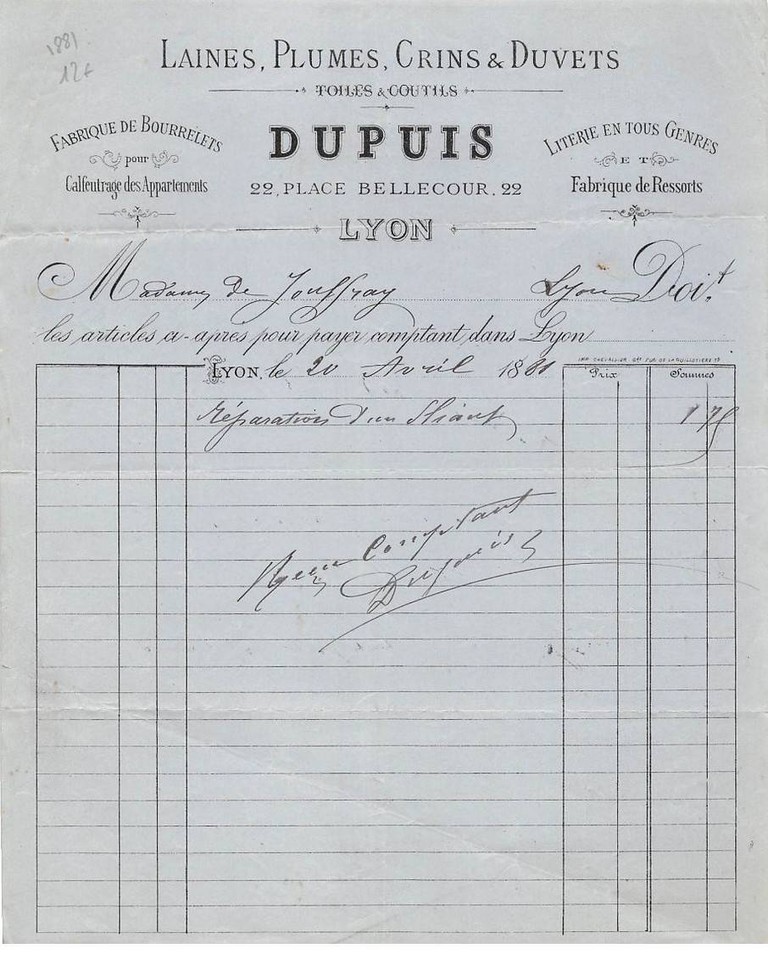 1881
12€
LAINES, PLUMES, CRINS & DUVETS
TOILES & COUTILS
FABRIQUE DE BOURRELETS
pour
Calfeutrage des Appartements
DUPUIS
22, PLACE BELLECOUR. 22
LYON
LITERIE EN TOUS GENRES
ET
Fabrique de Ressorts
Madame de Jouffray Lyon Doit
les articles ci-après pour payer comptant dans Lyon
IMP. CHEVALIER
LYON, le 20 Avril 1881
Prix
Sommes
Réparation d'un 1 75
Reçu Comptant
Dupuis